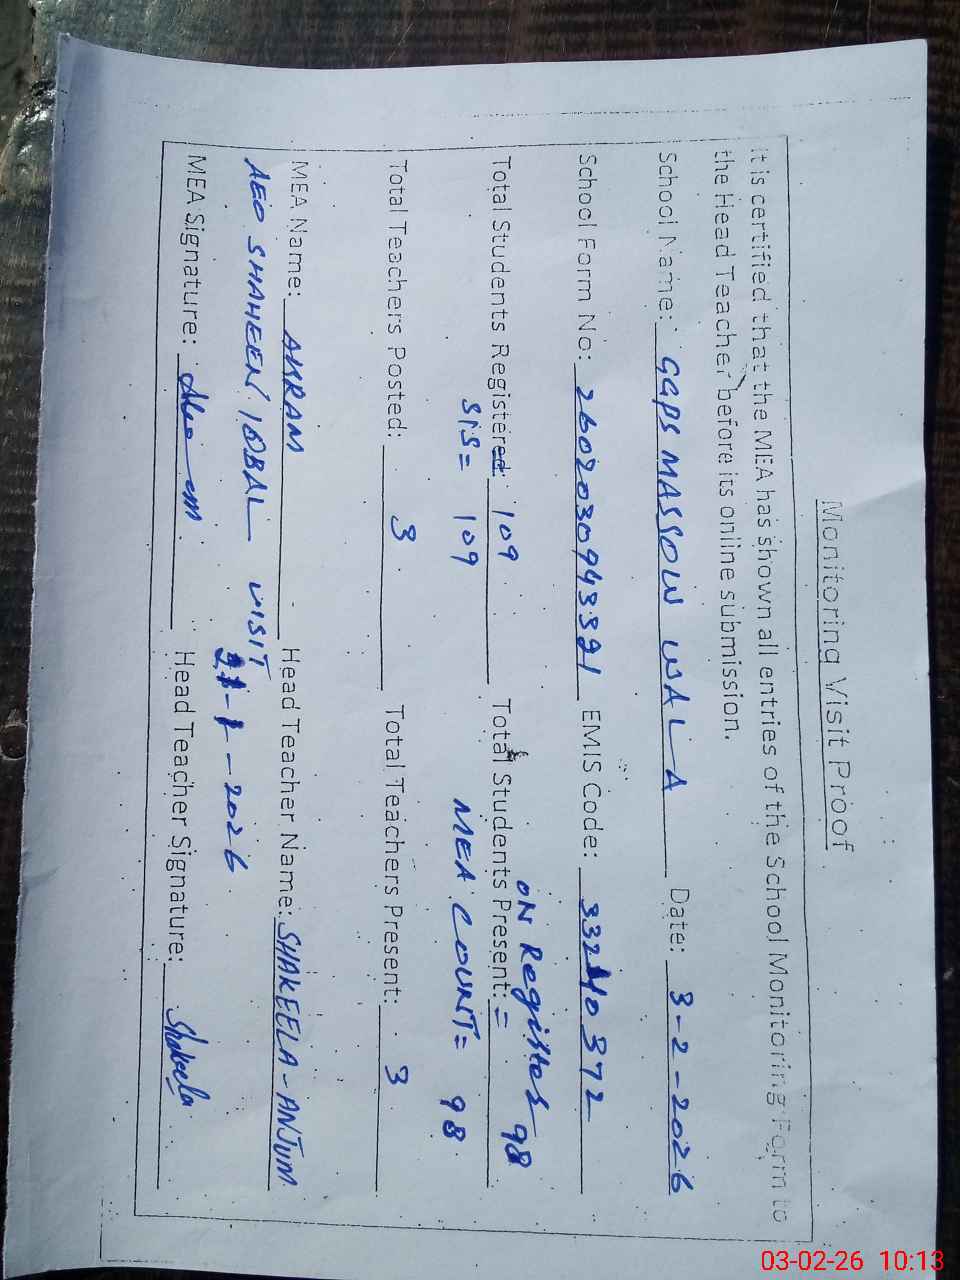 Monitoring Visit Proof
It is certified that the MEA has shown all entries of the School Monitoring Form to
the Head Teacher before its online submission.
School Name: GGPS MASSOW WALA Date: 3-2-2026
School Form No: 2602030943391 EMIS Code: 33240372
ON Register
Total Students Registered: 109 Total Students Present: = 98
SIS = 109 MEA COUNT = 98
Total Teachers Posted: 3 Total Teachers Present: 3
MEA Name: AKRAM Head Teacher Name: SHAKEELA-ANJUM
AEO SHAHEEN IQBAL VISIT
-1-2026
MEA Signature: Head Teacher Signature: Shakeela
03-02-26 10:13